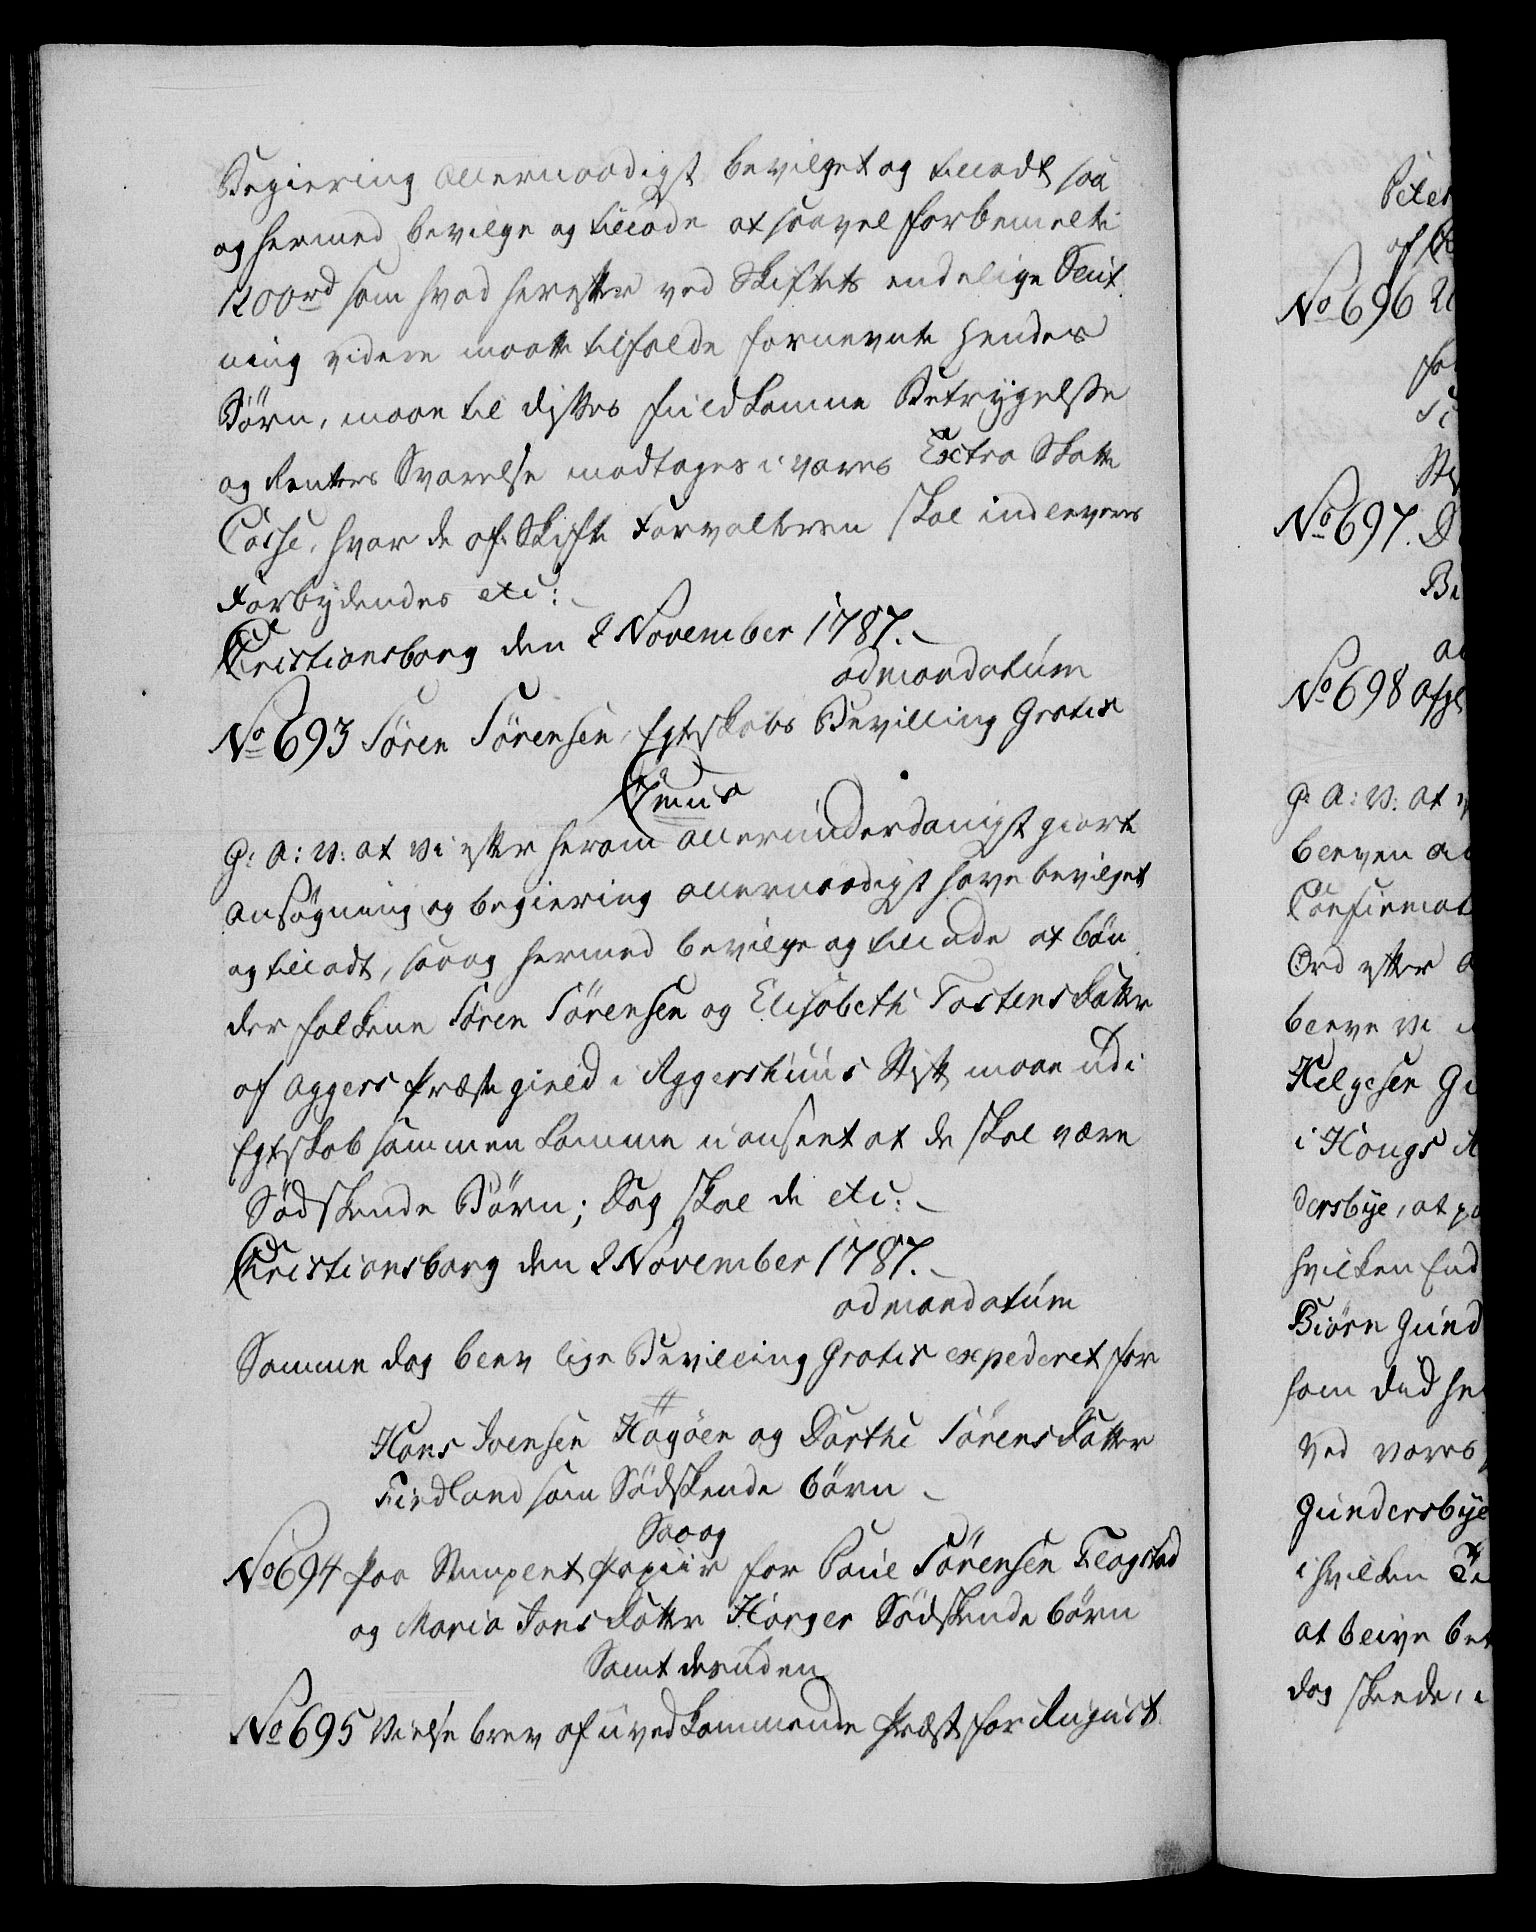 Begiering allernaadigst bevilget og tilladt saa
og hermed bevilge og tillade at saavel forbemelte
1200rd som hvad herefter ved Skiftets endelige Slut
ning videre maatte tilfalde fornevnte hendes
Børn, maae til dissses fuldkomne Betryggelse
og Renters Svarelse modtages i vores Extra Skatte
Casse, hvor de af Skifte Forvalteren skal indleveres
Forbydendes etc:
Christiansborg den 2 November 1787.
ad mandatum
No 693 Sören Sörensen Egteskabs Bevilling Gratis
C 7mus
G: A: V: at vi efter herom allerunderdanigst giorte
ansøgning og begiering allernaadigst have bevilget
og tilladt, saa og hermed bevilge og tillade at bøn
der folkene Sören Sörensen og Elisabeth TostensDatter
af Aggers Præstegield i Aggershuus Stift maae udi
Egteskab sammen komme uanseet at de skal være
Sødskende Børn; Dog skal de etc:
Christiansborg den 2 November 1787.
ad mandatum
Samme dag blev lige Bevilling Gratis expederet for
Hans Iversen Høgöen og Dorthe SörensDatter
Findland som Sødskende børn
Saa og
No 694 paa Stemplet Papiir for Poul Sörensen Flagstad
og Maria JonsDatter Horger Sødskende børn
Samt desuden
No 695 Vielse brev af uvedkommende Præst for August
Peter
af
No 696
No 697. D
Be
No 698 Afgl
G: A: V: at
bleven al
Confirmat
Ord efter
bleve vi
Helgesen Gu
i Hougs
dersbye, at
hvilken End
Biörn Gund
som Død he
ved vores
Gundersbye
i hvilken
at blive be
dog skeede,